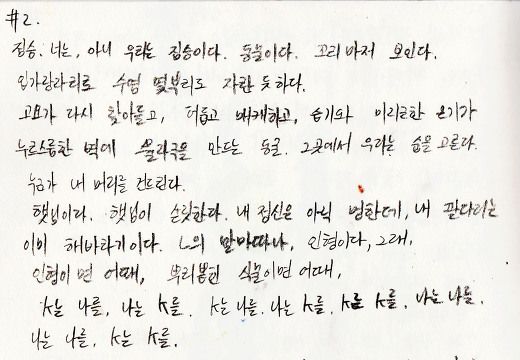 #2.
짐승. 너는, 아니 우리는 짐승이다. 동물이다. 꼬리마저 보인다.
입가랑라리로 수염 몇부리도 자란 듯하다.
고요가 다시 찾아들고, 더럽고 매캐하고, 습기와 미지근한 온기가
누르스름한 벽에 물자국을 만드는 동굴. 그곳에서 우리는 숨을 고른다.
누가 내 머리를 건드린다.
햇님이다. 햇님이 손짓한다. 내 정신은 아직 멍한데, 내 팔다리는
이미 해바라기이다. 너의 말마따나, 인형이다, 그래.
인형이면 어때, 뿌리뽑힌 식물이면 어때,
K는 나를, 나는 K를. K는 나를. 나는 K를, K로 K를, 나는 나를.
나는 나를, K는 K를.